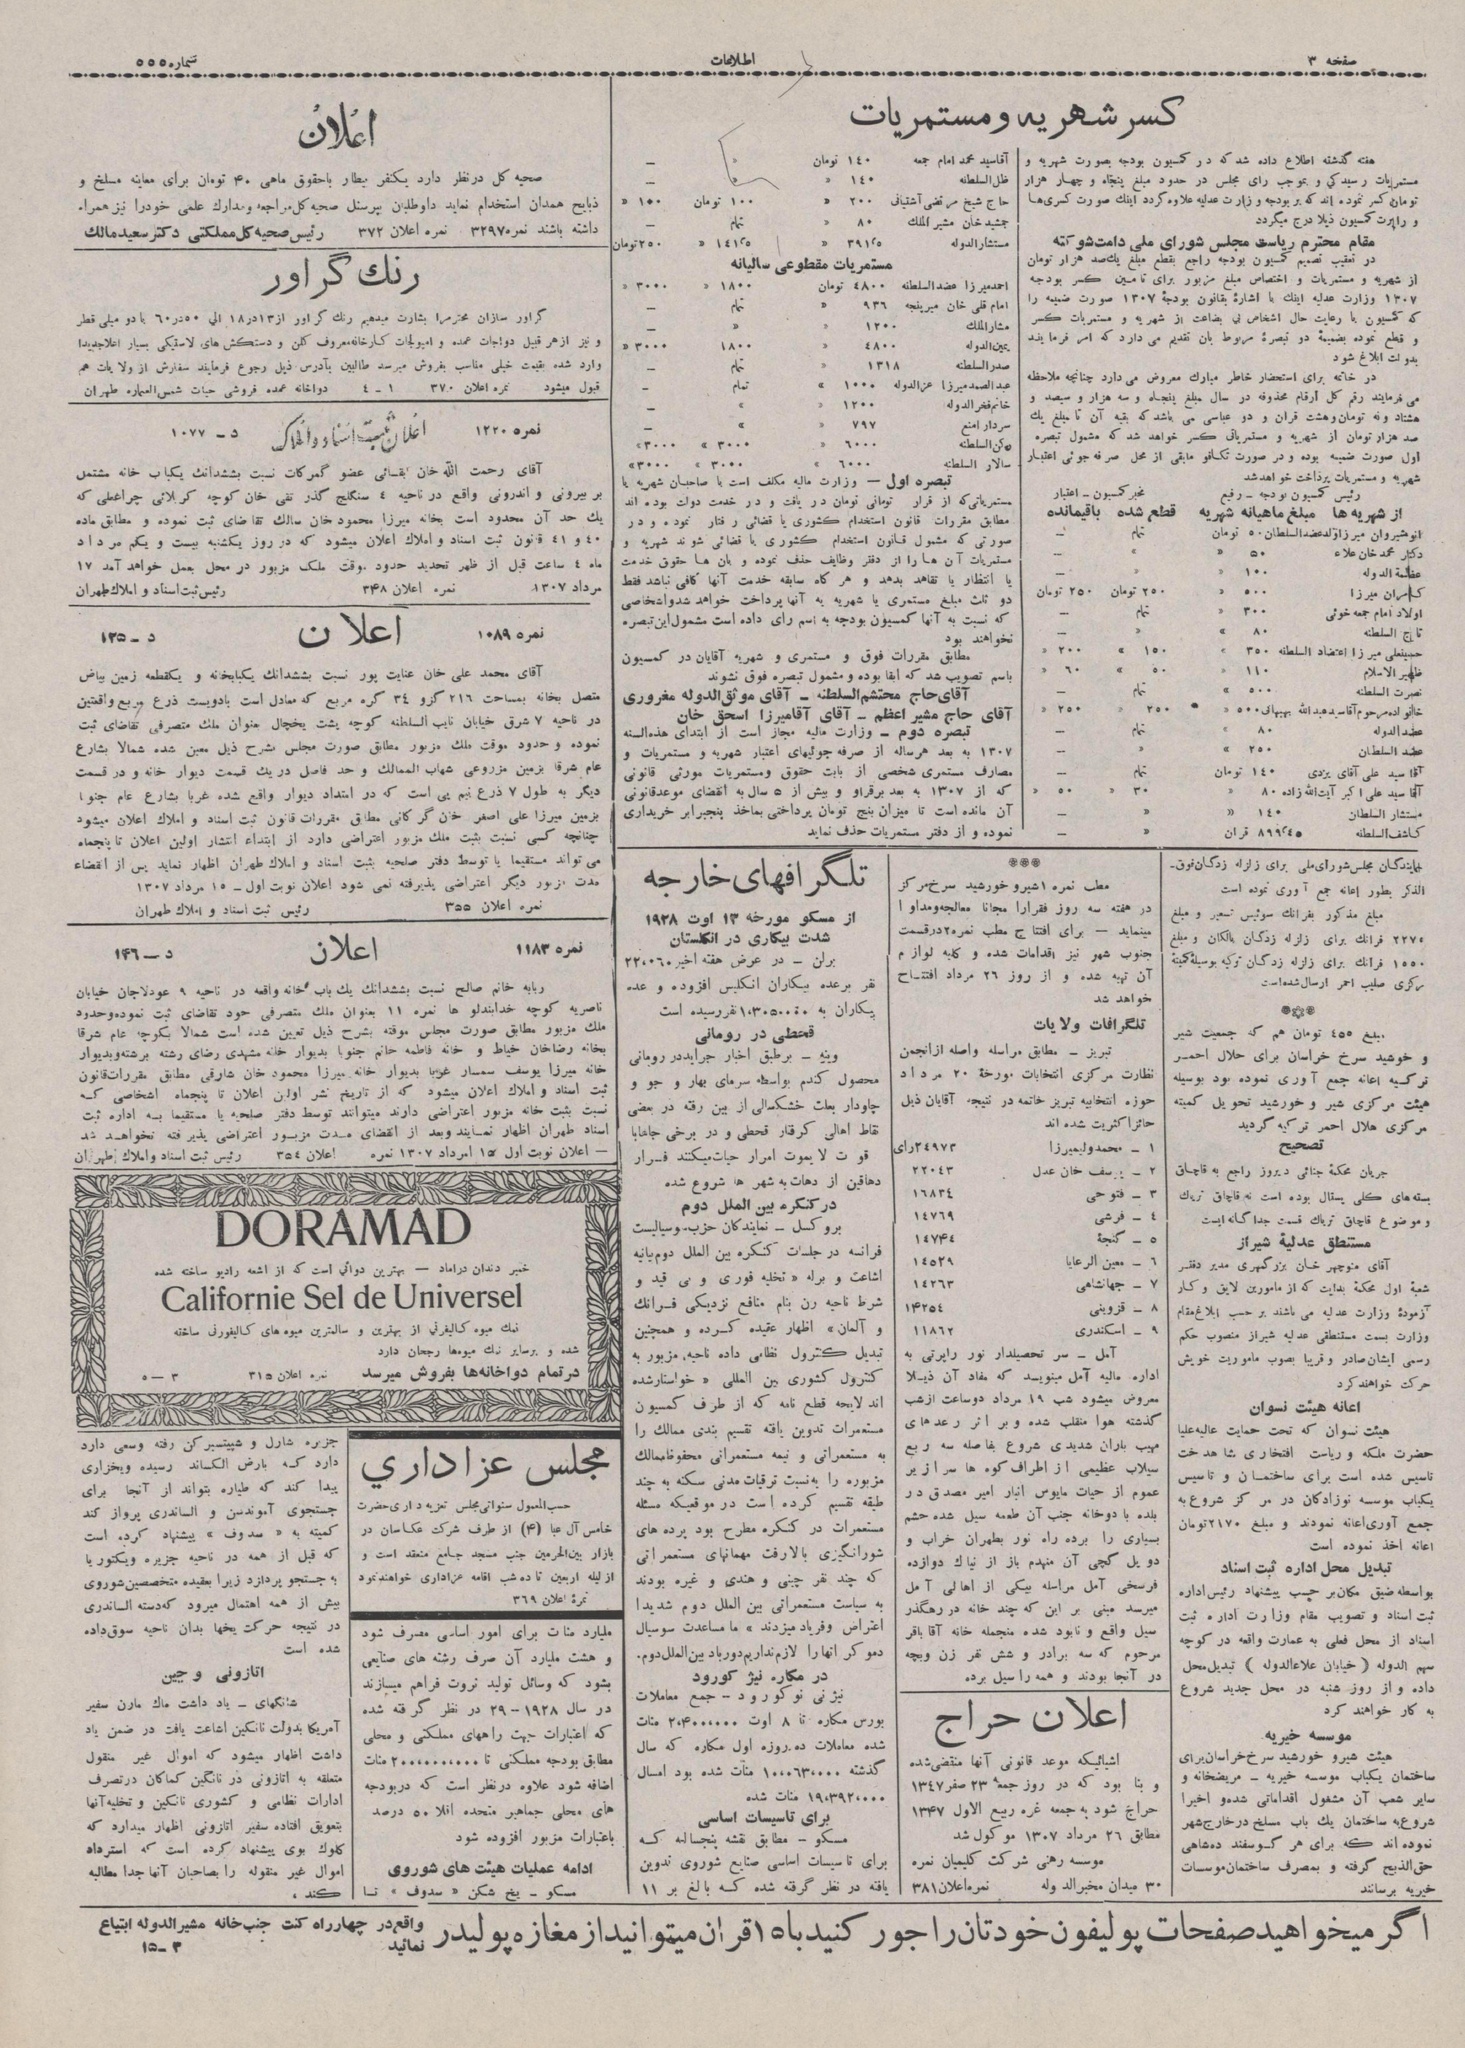 صفحه ۳
اطلاعات
شماره ۵۵۵
کسر شهریه و مستمریات
هفته گذشته اطلاع داده شد که در کمسیون بودجه بصورت شهریه و
مستمریات رسیدگی و بموجب رای مجلس در حدود مبلغ پنجاه و چهار هزار
تومان کسر نموده اند که بر بودجه وزارت عدلیه علاوه گردد اینک صورت کسری‌ها
و راپرت کمسیون ذیلا درج میگردد
مقام محترم ریاست مجلس شورای ملی دامت شوکته
در تعقیب تصمیم کمسیون بودجه راجع بقطع مبلغ یکصد هزار تومان
از شهریه و مستمریات و اختصاص مبلغ مزبور برای تامین کسر بودجه
۱۳۰۷ وزارت عدلیه اینک با اشاره بقانون بودجهٔ ۱۳۰۷ صورت ضمیمه را
که کمسیون با رعایت حال اشخاص بی بضاعت از شهریه و مستمریات کسر
و قطع نموده بضمیمهٔ دو تبصرهٔ مربوط بان تقدیم می دارد که امر فرمایند
بدولت ابلاغ شود
در خاتمه برای استحضار خاطر مبارک معروض می دارد چنانچه ملاحظه
می فرمایند رقم کل ارقام محذوفه در سال مبلغ پنجاه و سه هزار و سیصد و
هشتاد و نه تومان و هشت قران و دو عباسی می باشد که بقیه آن تا مبلغ یک
صد هزار تومان از شهریه و مستمریاتی کسر خواهد شد که مشمول تبصره
اول صورت ضمیمه بوده و در صورت تکافو مابقی از محل صرفه جوئی اعتبار
شهریه و مستمریات پرداخت خواهد شد
رئیس کمسیون بودجه ــ رفیع مخبر کمسیون ــ اعتبار
از شهریه ها مبلغ ماهیانه شهریه قطع شده باقیمانده
انوشیروان میرزا ولد عضد السلطان ۵۰ تومان تمام ــ
دکتر محمد خان علاء ۵۰ « » ــ
عظمة الدوله ۱۰۰ « « ــ
کامران میرزا ۵۰۰ « ۲۵۰ تومان ۲۵۰ تومان
اولاد امام جمعه خوئی ۳۰۰ « تمام ــ
تاج السلطنه ۸۰ « « ــ
حسینعلی میرزا اعتضاد السلطنه ۳۵۰ » ۱۵۰ » ۲۰۰ «
ظهیر الاسلام ۱۱۰ « ۵۰ « ۶۰ «
نصرت السلطنه ۵۰۰ » تمام ــ
خانواده مرحوم آقا سید عبدالله بهبهانی ۵۰۰ « ۲۵۰ « ۲۵۰ «
عضد الدوله ۸۰ « تمام ــ
عضد السلطان ۲۵۰ « « ــ
آقا سید علی آقای یزدی ۱۴۰ تومان تمام ــ
آقا سید علی اکبر آیت‌الله زاده ۸۰ » ۳۰ « ۵۰ «
مستشار السلطان ۱۴۰ « « ــ
کاشف السلطنه ۸۹۹٫۴۵ قران « ــ
آقا سید محمد امام جمعه ۱۴۰ تومان « ــ
ظل السلطنه ۱۴۰ « « ــ
حاج شیخ مرتضی آشتیانی ۲۰۰ « ۱۰۰ تومان ۱۰۰ «
جمشید خان مشیر الملک ۸۰ « تمام ــ
مستشار الدوله ۳۹۱٫۵ « ۱۴۱٫۵ « ۲۵۰ تومان
مستمریات مقطوعی سالیانه
احمد میرزا عضد السلطنه ۴۸۰۰ تومان ۱۸۰۰ « ۳۰۰۰ «
امام قلی خان میرپنجه ۹۳۶ « تمام ــ
مشار الملک ۱۲۰۰ « « ــ
یمین الدوله ۴۸۰۰ « ۱۸۰۰ ۳۰۰۰ «
صدر السلطنه ۱۳۱۸ « تمام ــ
عبد الصمد میرزا عز الدوله ۱۰۰۰ » تمام ــ
خانم فخر الدوله ۱۲۰۰ « » ــ
سردار امنع ۷۹۷ « » ــ
رکن السلطنه ۶۰۰۰ « ۳۰۰۰ » ۳۰۰۰»
سالار السلطنه ۶۰۰۰ « ۳۰۰۰ » ۳۰۰۰»
تبصره اول ــ وزارت مالیه مکلف است با صاحبان شهریه یا
مستمریاتی که از قرار تومانی تومان دریافت و در خدمت دولت بوده اند
مطابق مقررات قانون استخدام کشوری یا قضائی رفتار نموده و در
صورتی که مشمول قانون استخدام کشوری یا قضائی شوند شهریه و
مستمریات آن ها را از دفتر وظایف حذف نموده و بان ها حقوق خدمت
یا انتظار یا تقاعد بدهد و هر گاه سابقه خدمت آنها کافی نباشد فقط
دو ثلث مبلغ مستمری یا شهریه به آنها پرداخت خواهد شد و اشخاصی
که نسبت به آنها کمسیون بودجه به اسم رای داده است مشمول این تبصره
نخواهند بود
مطابق مقررات فوق و مستمری و شهریه آقایان در کمسیون
باسم تصویب شد که ابقا بوده و مشمول تبصره فوق نشوند
آقای حاج محتشم السلطنه ــ آقای موثق الدوله مغروری
آقای حاج مشیر اعظم ــ آقای آقا میرزا اسحق خان
تبصره دوم ــ وزارت مالیه مجاز است از ابتدای هذه السنه
۱۳۰۷ به بعد هر ساله از صرفه جوئیهای اعتبار شهریه و مستمریات و
مصارف مستمری شخصی از بابت حقوق و مستمریات مورثی قانونی
که از ۱۳۰۷ به بعد برقرار و بیش از ۵ سال به انقضای موعد قانونی
آن مانده است تا میزان پنج تومان پرداختی بماخذ پنجبرابر خریداری
نموده و از دفتر مستمریات حذف نماید
نمایندگان مجلس شورای ملی برای زلزله زدگان فوق‌ـ
الذکر بطور اعانه جمع آوری نموده است
مبلغ مذکور بفرانک سوئیس تسعیر و مبلغ
۲۲۷۵ فرانک برای زلزله زدگان بالکان و مبلغ
۱۵۵۰ فرانک برای زلزله زدگان ترکیه بوسیلهٔ کمیتهٔ
مرکزی صلیب احمر ارسال شده است
مبلغ ۴۵۵ تومان هم که جمعیت شیر
و خورشید سرخ خراسان برای حلال احمر
ترکیه اعانه جمع آوری نموده بود بوسیله
هیئت مرکزی شیر و خورشید تحویل کمیته
مرکزی هلال احمر ترکیه گردید
تصحیح
جریان محکمهٔ جنائی دیروز راجع به قاچاق
بسته های کلی پستال بوده است نه قاچاق تریاک
و موضوع قاچاق تریاک قسمت جداگانه ایست
مستنطق عدلیهٔ شیراز
آقای منوچهر خان بزرگمهری مدیر دفتر
شعبهٔ اول محکمهٔ بدایت که از مامورین لایق و کار
آزمودهٔ وزارت عدلیه می باشند بر حسب ابلاغ مقام
وزارت بسمت مستنطقی عدلیه شیراز منصوب حکم
رسمی ایشان صادر و قریبا بصوب ماموریت خویش
حرکت خواهند کرد
اعانه هیئت نسوان
هیئت نسوان که تحت حمایت عالیه علیا
حضرت ملکه و ریاست افتخاری شاهدخت
تاسیس شده است برای ساختمان و تاسیس
یکباب موسسه نوزادگان در مرکز شروع به
جمع آوری اعانه نمودند و مبلغ ۲۱۷۰ تومان
اعانه اخذ نموده است
تبدیل محل اداره ثبت اسناد
بواسطه ضیق مکان بر حسب پیشنهاد رئیس اداره
ثبت اسناد و تصویب مقام وزارت اداره ثبت
اسناد از محل فعلی به عمارت واقعه در کوچه
سهم الدوله ( خیابان علاءالدوله ) تبدیل محل
داده و از روز شنبه در محل جدید شروع
به کار خواهند کرد
موسسه خیریه
هیئت شیر و خورشید سرخ خراسان برای
ساختمان یکباب موسسه خیریه ــ مریضخانه و
سایر شعب آن مشغول اقداماتی شده و اخیرا
شروع به ساختمان یک باب مسلخ در خارج شهر
نموده اند که برای هر گوسفند ده شاهی
حق الذبح گرفته و بمصرف ساختمان موسسات
خیریه برسانند
***
مطب نمره ۱ شیر و خورشید سرخ مرکز
در هفته سه روز فقرا را مجانا معالجه و مداوا
مینماید ــ برای افتتاح مطب نمره ۲ در قسمت
جنوب شهر نیز اقدامات شده و کلیه لوازم
آن تهیه شده و از روز ۲۶ مرداد افتتاح
خواهد شد
تلگرافات ولایات
تبریز ــ مطابق مراسله واصله از انجمن
نظارت مرکزی انتخابات مورخهٔ ۲۰ مرداد
حوزه انتخابیه تبریز خاتمه در نتیجه آقایان ذیل
حائز اکثریت شده اند
۱ ــ محمد ولیمیرزا ۲۴۹۷۳ رای
۲ ــ یوسف خان عدل ۲۲۰۴۳
۳ ــ فتوحی ۱۶۸۳۴
۴ ــ فرشی ۱۴۷۶۹
۵ ــ گنجهٔ ۱۴۷۴۴
۶ ــ معین الرعایا ۱۴۵۲۹
۷ ــ جهانشاهی ۱۴۲۶۳
۸ ــ قزوینی ۱۴۲۵۴
۹ ــ اسکندری ۱۱۸۶۲
آمل ــ سر تحصیلدار نور راپرتی به
اداره مالیه آمل مینویسد که مفاد آن ذیلا
معروض میشود شب ۱۹ مرداد دو ساعت از شب
گذشته هوا منقلب شده و بر اثر رعد های
مهیب باران شدیدی شروع بفاصله سه ربع
سیلاب عظیمی از اطراف کوه ها سرازیر
عموم از حیات مایوس انبار امیر مصدق در
بلده با دو خانه جنب آن طعمه سیل شده حشم
بسیاری را برده راه نور بطهران خراب و
دو پل گچی آن منهدم باز از نیاک دوازده
فرسخی آمل مراسله بیکی از اهالی آمل
میرسد مبنی بر این که چند خانه در رهگذر
سیل واقع و نابود شده منجمله خانه آقا باقر
مرحوم که سه برادر و شش نفر زن و بچه
در آنجا بودند و همه را سیل برده
اعلان حراج
اشیائیکه موعد قانونی آنها منقضی شده
و بنا بود که در روز جمعهٔ ۲۳ صفر ۱۳۴۷
حراج شود به جمعه غره ربیع الاول ۱۳۴۷
مطابق ۲۶ مرداد ۱۳۰۷ موکول شد
موسسه رهنی شرکت کلیمیان نمره
۳۰ میدان مخبر الدوله نمره اعلان ۳۸۱
تلگرافهای خارجه
از مسکو مورخه ۱۳ اوت ۱۹۲۸
شدت بیکاری در انگلستان
برلن ــ در عرض هفته اخیر ۲۲،۰۶۰
نفر بر عده بیکاران انگلیس افزوده و عده
بیکاران به ۱،۳۰۵۰۰۰ نفر رسیده است
قحطی در رومانی
وینه ــ بر طبق اخبار جراید در رومانی
محصول گندم بواسطه سرمای بهار و جو و
چاودار بعلت خشکسالی از بین رفته در بعضی
نقاط اهالی گرفتار قحطی و در برخی جاها با
قوت لا یموت امرار حیات میکنند فرار
دهاقین از دهات به شهر ها شروع شده
در کنگره بین الملل دوم
بروکسل ــ نمایندگان حزب سوسیالیست
فرانسه در جلسات کنگره بین الملل دوم بیانیه
اشاعت و برله « تخلیه فوری و بی قید و
شرط ناحیه رن بنام منافع نزدیکی فرانک
و آلمان» اظهار عقیده کرده و همچنین
تبدیل کنترول نظامی داده ناحیه مزبور به
کنترول کشوری بین المللی « خواستار شده
اند لایحه قطع نامه که از طرف کمسیون
مستعمرات تدوین یافته تقسیم بندی ممالک را
به مستعمراتی و نیمه مستعمراتی محفوظ ممالک
مزبوره را به نسبت ترقیات مدنی سکنه به چند
طبقه تقسیم کرده است در موقعیکه مسئله
مستعمرات در کنگره مطرح بود پرده های
شورانگیزی بالا رفت مهمانهای مستعمراتی
که چند نفر چینی و هندی و غیره بودند
به سیاست مستعمراتی بین الملل دوم شدیدا
اعتراض و فریاد میزدند » ما مساعدت سوسیال
دموکراتها را لازم نداریم دور باد بین الملل دوم.
در مکاره نیژ گورود
نیژ نی نوگورود ــ جمع معاملات
بورس مکاره تا ۸ اوت ۲،۴۰۰،۰۰۰ منات
شده معاملات ده روزه اول مکاره که سال
گذشته ۱۰،۰۶۳،۰۰۰ منات شده بود امسال
۱۹،۳۹۲،۰۰۰ منات شده
برای تاسیسات اساسی
مسکو ــ مطابق نقشه پنجساله که
برای تاسیسات اساسی صنایع شوروی تدوین
یافته در نظر گرفته شده که بالغ بر ۱۱
ملیارد منات برای امور اساسی مصرف شود
و هشت ملیارد آن صرف رشته های صنایعی
بشود که وسائل تولید ثروت فراهم میسازند
در سال ۱۹۲۸ــ ۲۹ در نظر گرفته شده
که اعتبارات جهت راههای مملکتی و محلی
مطابق بودجه مملکتی تا ۲۰۰۰،۰۰۰،۰۰۰ منات
اضافه شود علاوه در نظر است که در بودجه
های محلی جماهیر متحده اقلا ۵۰ درصد
باعتبارات مزبور افزوده شود
ادامه عملیات هیئت های شوروی
مسکو ــ یخ شکن « سدوف » تا
جزیره شارل و شپیتسبرگن رفته وسعی دارد
دارد که بارض الکساند رسیده و بخزاری
پیدا کند که طیاره بتواند از آنجا برای
جستجوی آموندسن و الساندری پرواز کند
کمیته به « سدوف » پیشنهاد کرده است
که قبل از همه در ناحیه جزیره ویکتور یا
به جستجو پردازد زیرا بعقیده متخصصین شوروی
بیش از همه احتمال میرود که دسته الساندری
در نتیجه حرکت یخها بدان ناحیه سوق داده
شده است
اتازونی و چین
شانگهای ــ یاد داشت ماک مارن سفیر
آمریکا بدولت نانکین اشاعت یافت در ضمن یاد
داشت اظهار میشود که اموال غیر منقول
متعلقه به اتازونی در نانکین کماکان در تصرف
ادارات نظامی و کشوری نانکین و تخلیه آنها
بتعویق افتاده سفیر اتازونی اظهار میدارد که
کلوک بوی پیشنهاد کرده است که استرداد
اموال غیر منقوله را بصاحبان آنها جدا مطالبه
کند ،
اعلان
صحیه کل در نظر دارد یکنفر بیطار با حقوق ماهی ۴۰ تومان برای معاینه مسلخ و
ذبایح همدان استخدام نماید داوطلبان بپرسنل صحیه کل مراجعه و مدارک علمی خود را نیز همراه
داشته باشند نمره ۳۲۹۷ نمره اعلان ۳۷۲ رئیس صحیه کل مملکتی دکتر سعید مالک
رنک گراور
گراور سازان محترم را بشارت میدهیم رنک گراور از ۱۳ در ۱۸ الی ۵۰ در ۶۰ با دو میلی قطر
و نیز از هر قبیل دواجات عمده و امپولجات کارخانه معروف کلن و دستکش های لاستیکی بسیار اعلا جدیدا
وارد شده بقیمت خیلی مناسب بفروش میرسد طالبین بآدرس ذیل رجوع فرمایند سفارش از ولایات هم
قبول میشود نمره اعلان ۳۷۰ ۱ ــ ۴ دواخانه عمده فروشی حیات شمس العماره طهران
نمره ۱۲۲۰ اعلان ثبت اسناد و املاک د ــ ۱۰۷۷
آقای رحمت الله خان لقائی عضو گمرکات نسبت بششدانک یکباب خانه مشتمل
بر بیرونی و اندرونی واقع در ناحیه ۴ سنگلج گذر تقی خان کوچه کربلائی چراغعلی که
یک حد آن محدود است بخانه میرزا محمود خان سالک تقاضای ثبت نموده و مطابق ماده
۴۰ و ۴۱ قانون ثبت اسناد و املاک اعلان میشود که در روز یکشنبه بیست و یکم مرداد
ماه ۴ ساعت قبل از ظهر تحدید حدود موقت ملک مزبور در محل بعمل خواهد آمد ۱۷
مرداد ۱۳۰۷ نمره اعلان ۳۴۸ رئیس ثبت اسناد و املاک طهران
نمره ۱۰۸۹ اعلان د ــ ۱۳۵
آقای محمد علی خان عنایت پور نسبت بششدانک یکبابخانه و یکقطعه زمین بیاض
متصل بخانه بمساحت ۲۱۶ گز و ۳۴ گره مربع که معادل است با دویست ذرع مربع واقعتین
در ناحیه ۷ شرق خیابان نایب السلطنه کوچه پشت یخچال بعنوان ملک متصرفی تقاضای ثبت
نموده و حدود موقت ملک مزبور مطابق صورت مجلس بشرح ذیل معین شده شمالا بشارع
عام شرقا بزمین مزروعی شهاب الممالک و حد فاصل در یک قسمت دیوار خانه و در قسمت
دیگر به طول ۷ ذرع نیم پی است که در امتداد دیوار واقع شده غربا بشارع عام جنوبا
بزمین میرزا علی اصغر خان گرکانی مطابق مقررات قانون ثبت اسناد و املاک اعلان میشود
چنانچه کسی نسبت بثبت ملک مزبور اعتراضی دارد از ابتداء انتشار اولین اعلان تا پنجماه
می تواند مستقیما یا توسط دفتر صلحیه بثبت اسناد و املاک طهران اظهار نماید پس از انقضاء
مدت مزبور دیگر اعتراضی پذیرفته نمی شود اعلان نوبت اول ــ ۱۵ مرداد ۱۳۰۷
نمره اعلان ۳۵۵ رئیس ثبت اسناد و املاک طهران
نمره ۱۱۸۳ اعلان د ــ ۱۴۶
ربابه خانم صالح نسبت بششدانک یک باب خانه واقعه در ناحیه ۹ عودلاجان خیابان
ناصریه کوچه خدابندلوها نمره ۱۱ بعنوان ملک متصرفی خود تقاضای ثبت نموده و حدود
ملک مزبور مطابق صورت مجلس موقته بشرح ذیل تعیین شده است شمالا بکوچه عام شرقا
بخانه رضاخان خیاط و خانه فاطمه خانم جنوبا بدیوار خانه مشهدی رضای رشته برشته و بدیوار
خانه میرزا یوسف سمسار غربا بدیوار خانه میرزا محمود خان شارقی مطابق مقررات قانون
ثبت اسناد و املاک اعلان میشود که از تاریخ نشر اولین اعلان تا پنجماه اشخاصی که
نسبت بثبت خانه مزبور اعتراضی دارند میتوانند توسط دفتر صلحیه یا مستقیما به اداره ثبت
اسناد طهران اظهار نمایند و بعد از انقضای مدت مزبور اعتراضی پذیرفته نخواهد شد
ــ اعلان نوبت اول ۱۵ امرداد ۱۳۰۷ نمره اعلان ۳۵۴ رئیس ثبت اسناد و املاک طهران
DORAMAD
خمیر دندان دراماد ــ بهترین دوائی است که از اشعه رادیو ساخته شده
Californie Sel de Universel
نمک میوه کالیفرنی از بهترین و سالمترین میوه های کالیفورنی ساخته
شده و برسایر نمک میوه‌ها رجحان دارد
در تمام دواخانه‌ها بفروش میرسد نمره اعلان ۳۱۵ ۳ ــ ۵
مجلس عزاداری
حسب المعمول سنواتی مجلس تعزیه داری حضرت
خامس آل عبا (۴) از طرف شرکت عکاسان در
بازار بین الحرمین جنب مسجد جامع منعقد است و
از لیله اربعین تا ده شب اقامه عزاداری خواهند نمود
نمرهٔ اعلان ۳۶۹
اگر میخواهید صفحات پولیفون خودتان را جور کنید با ۱۵ قران میتوانید از مغازه پولیدر واقع در چهار راه کنت جنب خانه مشیر الدوله ابتیاع
نمائید ۳ــ۱۵